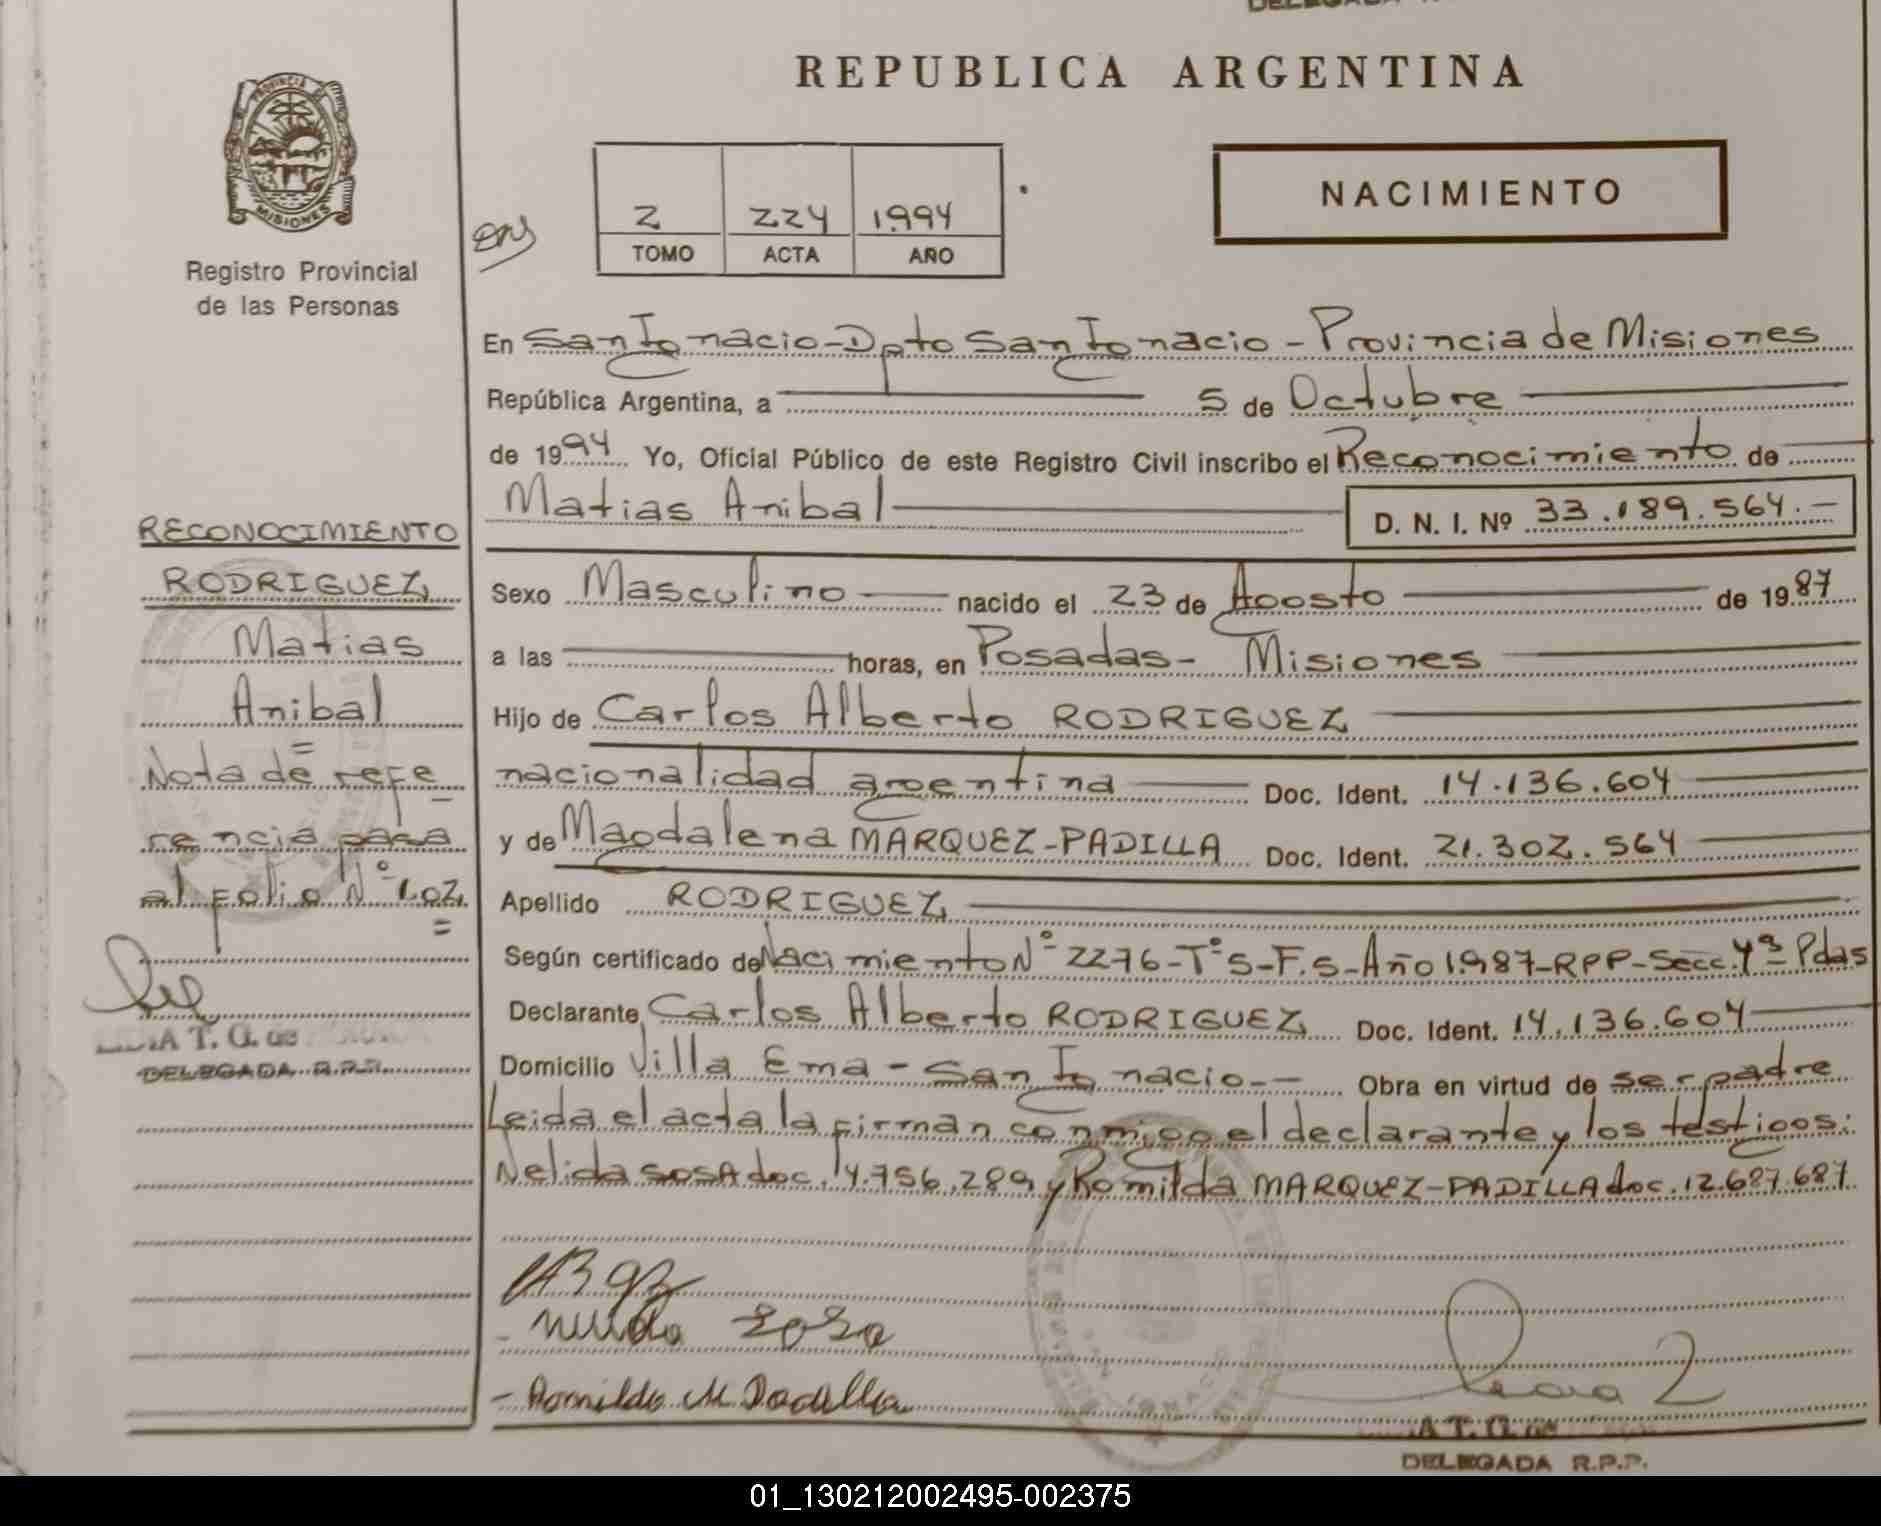 REPUBLICA ARGENTINA
PROVINCIA DE
MISIONES
Registro Provincial
de las Personas
NACIMIENTO
2 224 1.994
TOMO ACTA AÑO
En San Ignacio-Dpto San Ignacio-Provincia de Misiones
República Argentina, a 5 de Octubre
de 1994 Yo, Oficial Público de este Registro Civil inscribo el Reconocimiento de
Matias Anibal D. N. I. Nº 33.189.564.-
Sexo Masculino nacido el 23 de Agosto de 1987
a las horas, en Posadas- Misiones
Hijo de Carlos Alberto RODRIGUEZ
nacionalidad argentina Doc. Ident. 14.136.604
y de Magdalena MARQUEZ-PADILLA Doc. Ident. 21.302.564
Apellido RODRIGUEZ
Según certificado de Nacimiento Nº 2276-Tº5-F.5-Año 1.987-RPP-Secc.4ª Pdas
Declarante Carlos Alberto RODRIGUEZ Doc. Ident. 14.136.604
Domicilio Villa Ema - San Ignacio-- Obra en virtud de ser padre
Leida el acta la firman conmigo el declarante y los testigos:
Nelida SOSA doc. 14.756.289 y Romilda MARQUEZ-PADILLA doc. 12.687.687
Nelida Sosa
- Romilda M. Padilla
A T. G. de
DELEGADA R.P.P.
RECONOCIMIENTO
RODRIGUEZ
Matias
Anibal
=
Nota de refe
rencia pasa
al Folio Nº 102
=
LIDIA T. G. de
DELEGADA R.P.P.
01_130212002495-002375